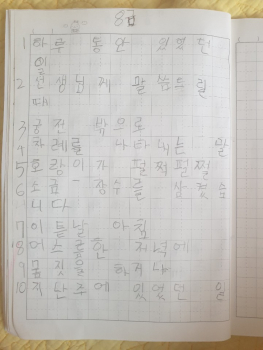 8급
1 하루 동안 있었던
일
2 선생님께 말씀드릴
때
3 궁전 밖으로
4 차례를 나타내는 말
5 호랑이가 펄쩍펄쩍
6 소금 장수를 삼켰습
니다
7 이튿날 아침
8 어스름한 저녁에
9 몸짓을 하거나
10 지난주에 있었던 일